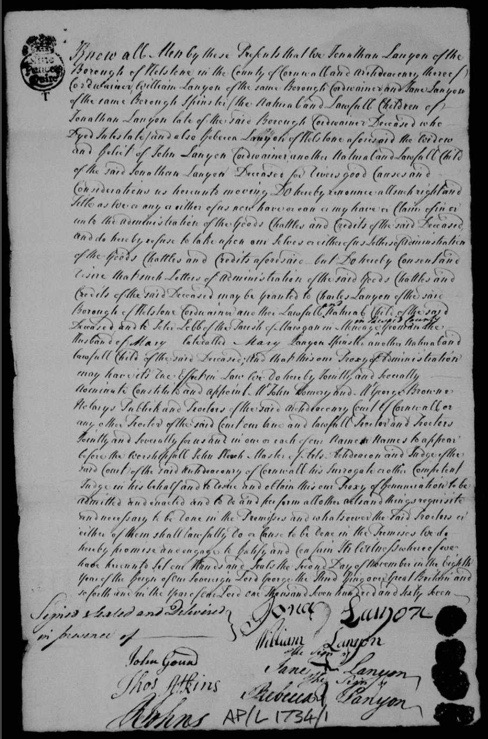 Know all Men by these Presents that We Jonathan Lanyon of the
Borough of Helstone in the County of Cornwall and Archdeaconry thereof
Cordwainer William Lanyon of the same Borough Cordwainer and Jane Lanyon
of the same Borough Spinster (the Natural and Lawfull Children of
Jonathan Lanyon late of the said Borough Cordwainer Deceased who
Dyed Intestate) and also Rebecca Lanyon of Helstone aforesaid the Widow
and Relict of John Lanyon Cordwainer another Natural and Lawfull Child
of the said Jonathan Lanyon Deceased for divers good Causes and
Considerations us hereunto moving Do hereby renounce all such right and
Title as we or any or either of us now have or can or may have or Claim of in or
unto the Administration of the Goods Chattles and Credits of the said Deceased
and do hereby refuse to take upon our selves or either of us Letters of Administration
of the Goods Chattles and Credits aforesaid but Do hereby Consent and
desire that such Letters of Administration of the said Goods Chattles and
Credits of the said Deceased may be granted to Charles Lanyon of the said
Borough of Helstone Cordwainer another Lawfull and Natural Child of the said
Deceased and to John of the Parish of Mawgan in Meneage Yeoman the
Husband of Mary late called Mary Lanyon Spinster another Natural and
lawfull Child of the said Deceased, And that this our Proxy of Administration
may have its due Effect in Law We do hereby Jointly and Severally
Nominate Constitute and appoint Mr John and Mr George Browne
Notarys Publick and Proctors of the said Archdeaconry Court of Cornwall or
any other Proctor of the said Court our true and lawfull Proctor and Proctors
Jointly and Severally for us and in our or each of our Name or Names to appear
before the Worshipfull John Master of Arts Archdeacon and Judge of the
said Court of the said Archdeaconry of Cornwall his Surrogate or other Competent
Judge in his behalf and to desire and obtain this our Proxy of Renunciation to be
admitted and enacted and to do and perform all other Acts and things requisite
and necessary to be done in the Premisses and whatsoever the said Proctors or
either of them shall lawfully Do or Cause to be done in the Premisses We do
hereby promise and engage to Ratify and Confirm In Witness whereof we
have hereunto Set our Hands and Seals the Second Day of November in the Eighth
Year of the Reign of Our Sovereign Lord George the Third King over Great Britain and
so forth and in the Year of our Lord One thousand Seven hundred and Sixty Seven
Signed Sealed and Delivered
in presence of
Jona Lanyon
William Lanyon
the Sign of
Jane Lanyon
the Sign of
Rebecca Lanyon
John
Thos Atkins
Johns
AP/L 1734/1